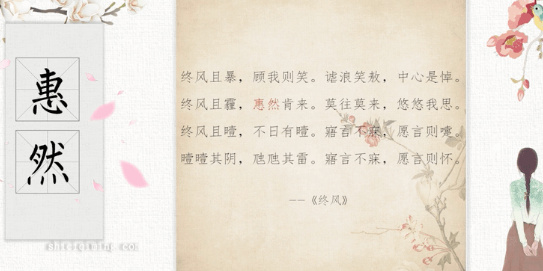 惠
然
终风且暴，顾我则笑。谑浪笑敖，中心是悼。
终风且霾，惠然肯来。莫往莫来，悠悠我思。
终风且曀，不日有曀。寤言不寐，愿言则嚏。
曀曀其阴，虺虺其雷。寤言不寐，愿言则怀。
——《终风》